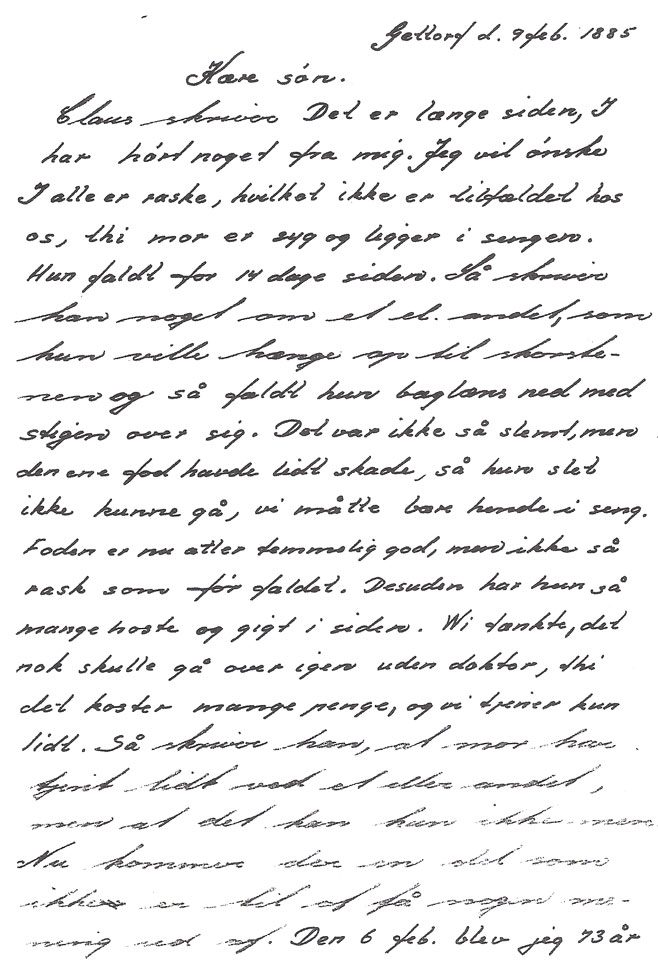 Gettorf d. 9 feb. 1885
Kære søn.
Claus skriver Det er længe siden, I
har hørt noget fra mig. Jeg vil ønske
I alle er raske, hvilket ikke er tilfældet hos
os, thi mor er syg og ligger i sengen.
Hun faldt for 14 dage siden. Så skriver
han noget om et el. andet, som
hun ville hænge op til skorste-
nen og så faldt hun baglæns ned med
stigen over sig. Det var ikke så slemt, men
den ene fod havde lidt skade, så hun slet
ikke kunne gå, vi måtte bære hende i seng.
Foden er nu atter temmelig god, men ikke så
rask som før faldet. Desuden har hun så
mange hoste og gigt i siden. Wi tænkte, det
nok skulle gå over igen uden doktor, thi
det koster mange penge, og vi tjener kun
lidt. Så skriver han, at mor har
tjent lidt ved et eller andet,
men at det kan hun ikke men
Nu kommer der en del som
ikke er til at få nogen me-
ning ud af. Den 6 feb. blev jeg 73 år